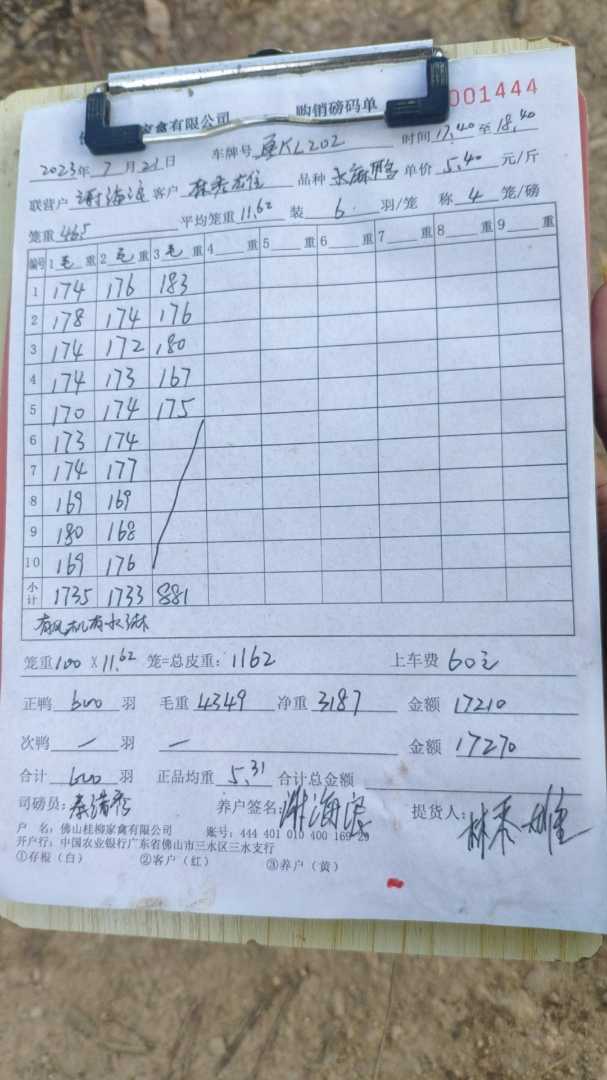 家禽有限公司 购销磅码单 001444
2023年7月21日 车牌号 KL202 时间17.40至18.40
联营户 谢海滨 客户 林秀雄 品种 单价5.40元/斤
笼重46.5 平均笼重11.62 装6羽/笼 称4笼/磅
编号 1毛重 2毛重 3毛重 4重 5重 6重 7重 8重 9重
1 174 176 183
2 178 174 176
3 174 172 180
4 174 173 167
5 170 174 175
6 173 174
7 174 177
8 169 169
9 180 168
10 169 176
小计 1735 1733 881
有风机有水淋
笼重100X11.62笼=总皮重:1162 上车费60元
正鸭600羽 毛重4349 净重3187 金额17210
次鸭一羽 一 金额17270
合计600羽 正品均重5.31 合计总金额
司磅员: 养户签名:谢海滨 提货人:林秀雄
户 名:佛山桂柳家禽有限公司 账号:444 401 010 400 169 29
开户行:中国农业银行广东省佛山市三水区三水支行
①存根(白) ②客户(红) ③养户(黄)